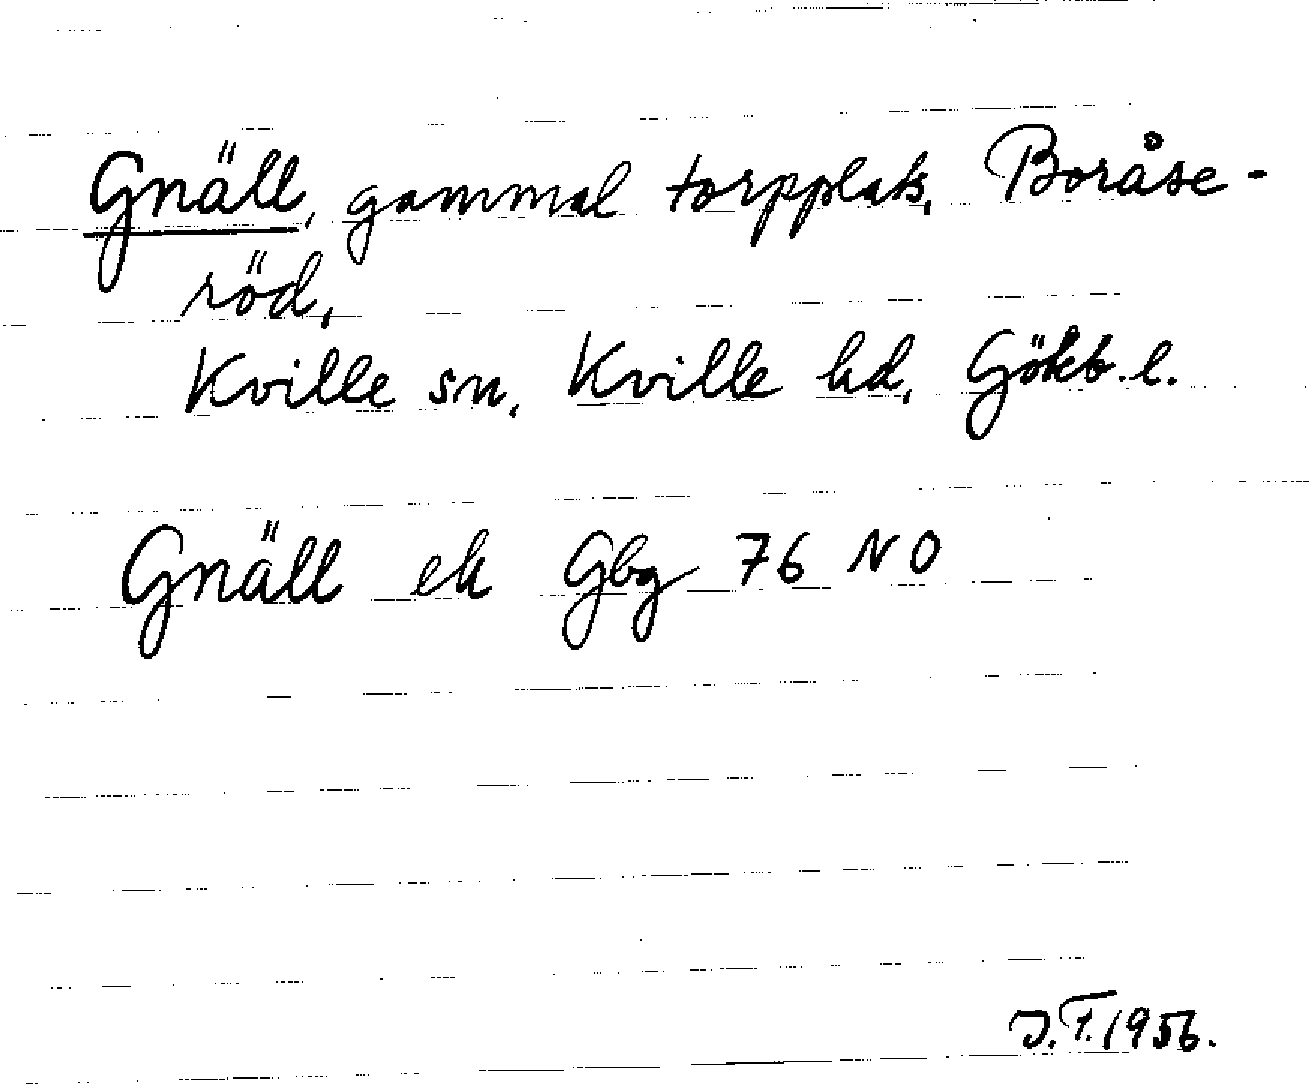 Gnäll, gammal torpplats, Boråse-
röd,
Kville sn, Kville hd, Göteb. l.
Gnäll ek Gbg 76 NO
J.F. 1956.